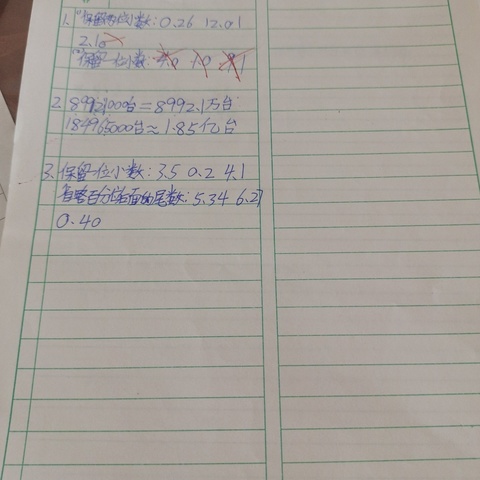 1. (1)保留两位小数: 0.26 12.01
2.10
(2)保留一位小数:
2. 8992100台=8992.1万台
184965000台≈1.85亿台
3. 保留一位小数: 3.5 0.2 4.1
省略百分位后面的尾数: 5.34 6.27
0.40